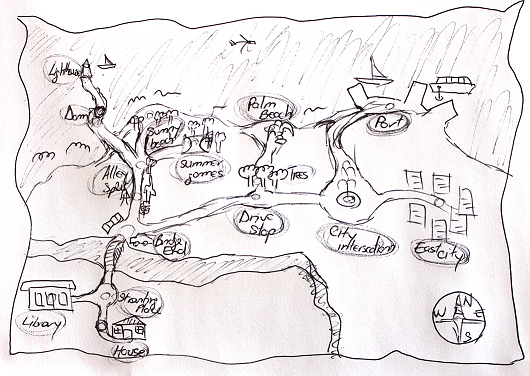 Lighthouse
Dom
Sunny
beach
Palm
Beach
Port
Alley
Split
summer
games
Trees
Drive
Stop
City
intersection
East City
Bridge
End
Library
Place
House
N
W E
S